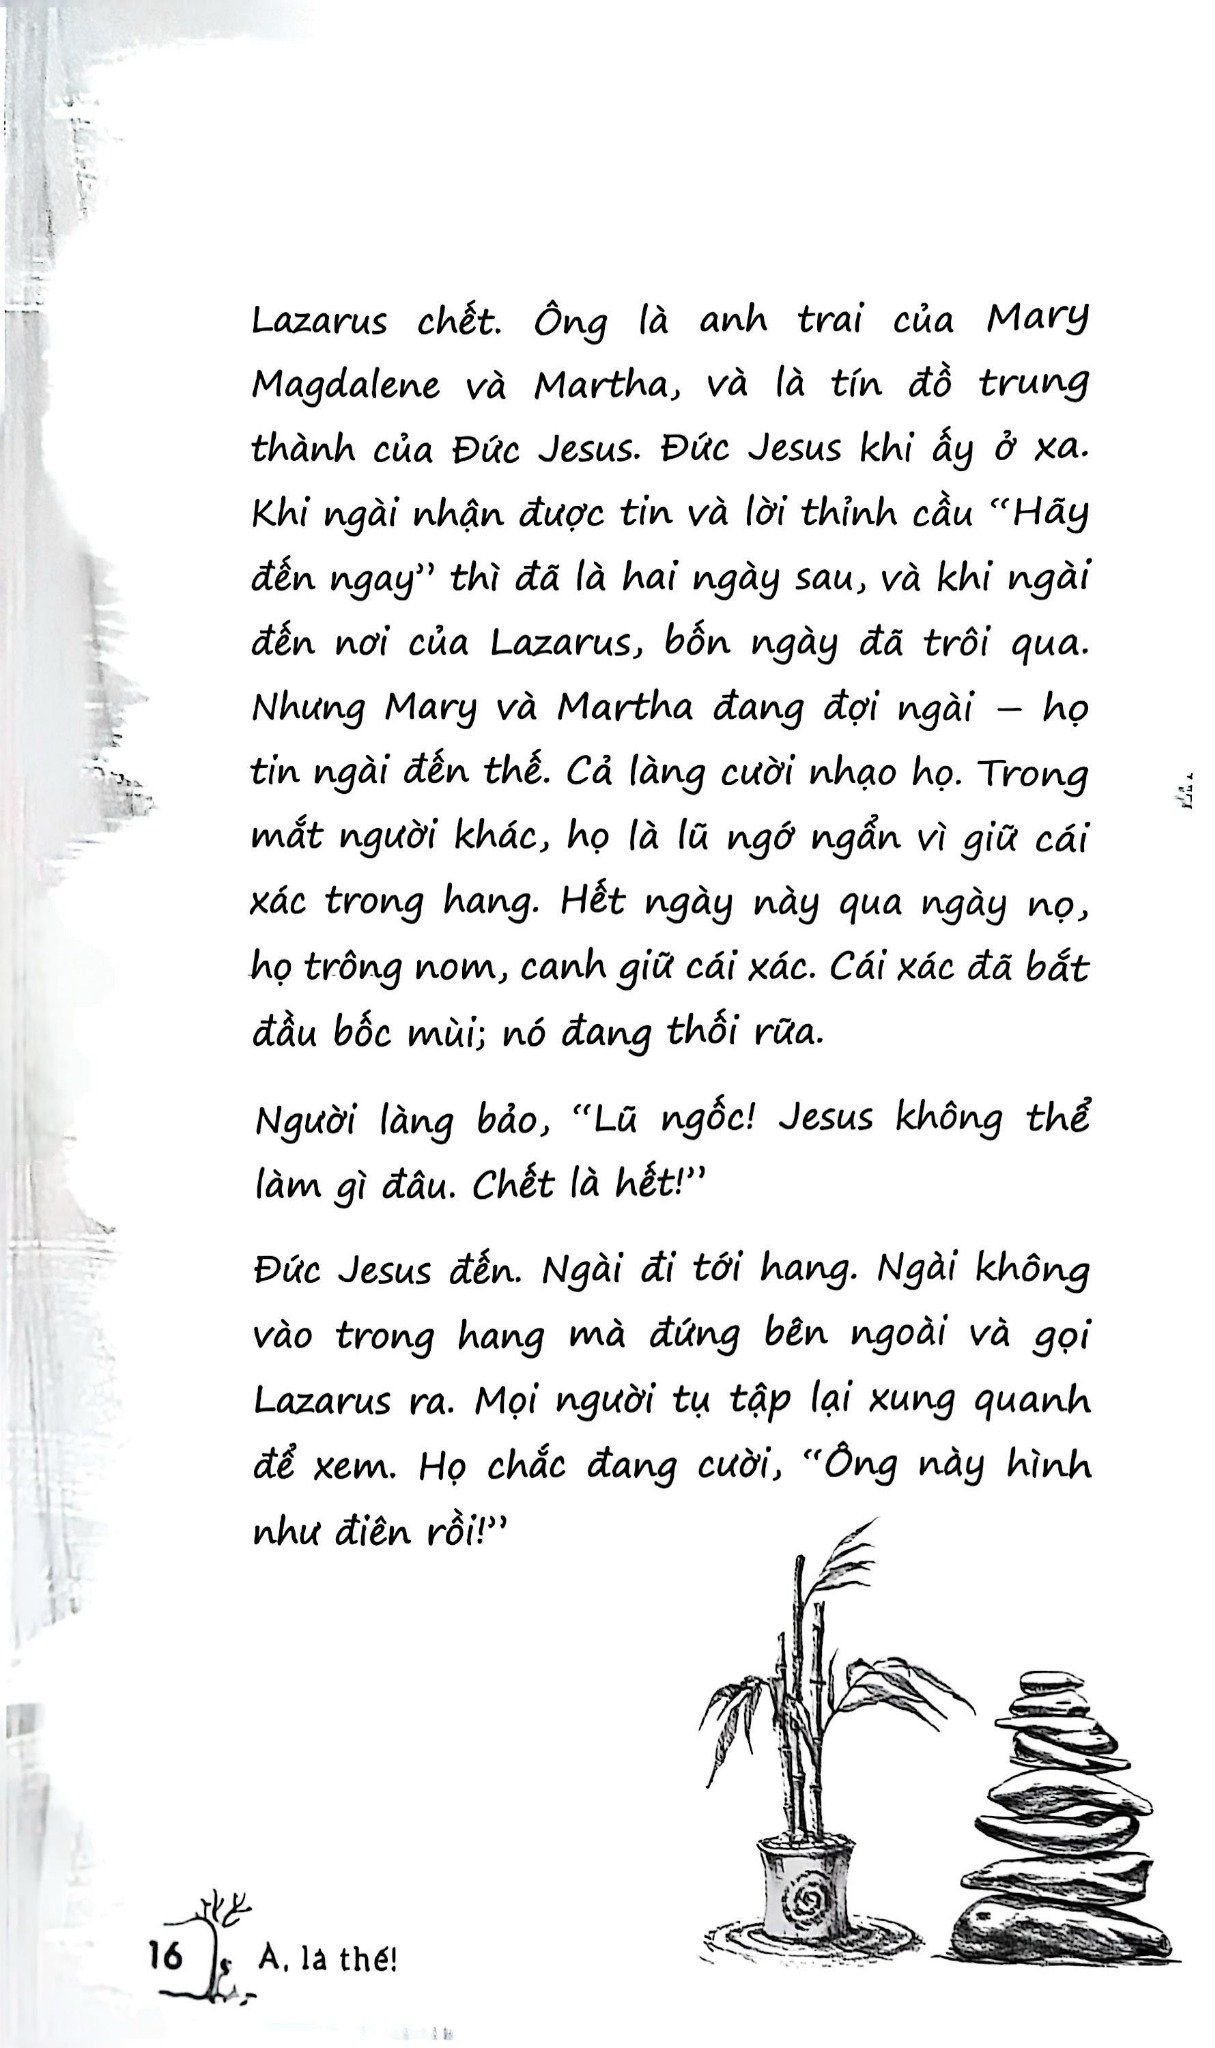 Lazarus chết. Ông là anh trai của Mary
Magdalene và Martha, và là tín đồ trung
thành của Đức Jesus. Đức Jesus khi ấy ở xa.
Khi ngài nhận được tin và lời thỉnh cầu “Hãy
đến ngay” thì đã là hai ngày sau, và khi ngài
đến nơi của Lazarus, bốn ngày đã trôi qua.
Nhưng Mary và Martha đang đợi ngài – họ
tin ngài đến thế. Cả làng cười nhạo họ. Trong
mắt người khác, họ là lũ ngớ ngẩn vì giữ cái
xác trong hang. Hết ngày này qua ngày nọ,
họ trông nom, canh giữ cái xác. Cái xác đã bắt
đầu bốc mùi; nó đang thối rữa.
Người làng bảo, “Lũ ngốc! Jesus không thể
làm gì đâu. Chết là hết!”
Đức Jesus đến. Ngài đi tới hang. Ngài không
vào trong hang mà đứng bên ngoài và gọi
Lazarus ra. Mọi người tụ tập lại xung quanh
để xem. Họ chắc đang cười, “Ông này hình
như điên rồi!”
16 A, là thế!